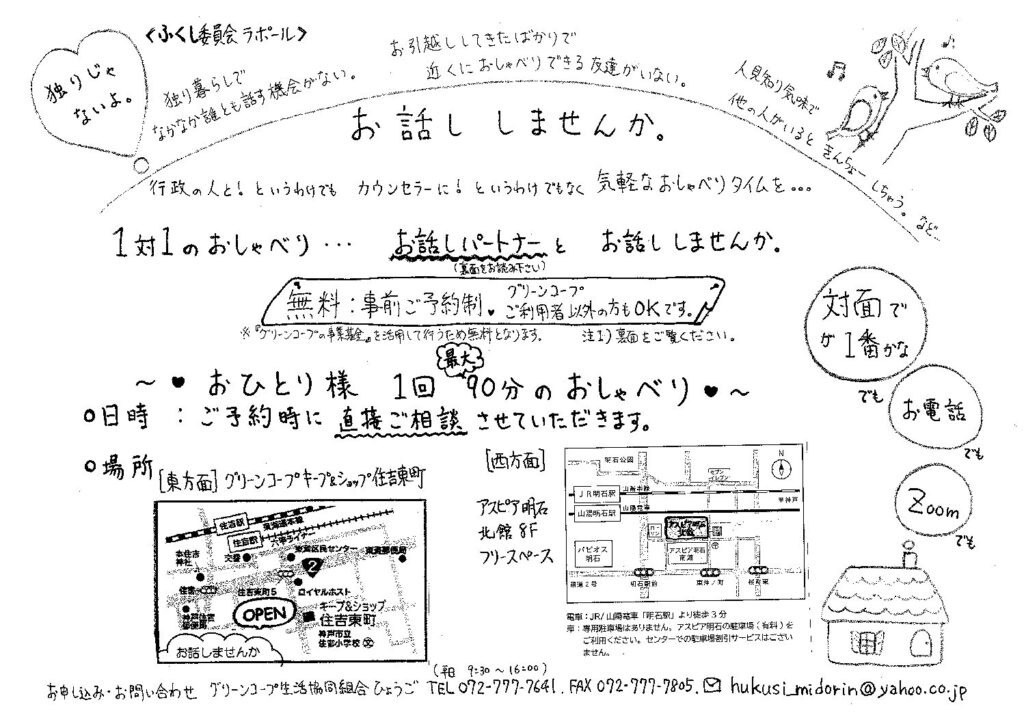 〈ふくし委員会 ラポール〉
独りじゃ
ないよ。
独り暮らしで
なかなか誰とも話す機会がない。
お引越ししてきたばかりで
近くにおしゃべりできる友達がいない。
人見知り気味で
他の人がいると きんちょーしちゃう。など…
お話し しませんか。
行政の人と！というわけでも カウンセラーに！というわけでもなく 気軽なおしゃべりタイムを…
1対1のおしゃべり… お話しパートナーと お話ししませんか。
(裏面をお読み下さい)
無料：事前ご予約制。グリーンコープ
ご利用者以外の方もOKです。
※『グリーンコープの事業基金』を活用して行うため無料となります。 注1)裏面をご覧ください。
対面で
が1番かな
でも
お電話
でも
Zoom
でも
最大
～♥おひとり様 1回 90分のおしゃべり♥～
○日時：ご予約時に 直接ご相談 させていただきます。
○場所
[東方面] グリーンコープキープ&ショップ住吉東町
住吉駅
東海道本線
住吉駅
六甲ライナー
本住吉
神社
交番
東灘区民センター
東灘郵便局
2
住吉東町5
ロイヤルホスト
OPEN
キープ&ショップ
住吉東町
神戸住吉
郵便局
神戸市立
住吉小学校 文
お話しませんか
[西方面]
アスピア明石
北館 8F
フリースペース
明石公園
セブン
イレブン
N
JR明石駅
山陽本線
山陽明石駅
山陽電車
至神戸
アスピア明石
北館
パピオス
明石
アスピア明石
南館
国道2号
明石駅前
東仲ノ町
桜町東
電車：JR/山陽電車「明石駅」より徒歩3分
車：専用駐車場はありません。アスピア明石の駐車場（有料）を
ご利用ください。センターでの駐車場割引サービスはござい
ません。
(平日 9:30～16:00)
お申し込み・お問い合わせ グリーンコープ生活協同組合ひょうご TEL 072-777-7641. FAX 072-777-7805. ✉ hukusi_midorin@yahoo.co.jp